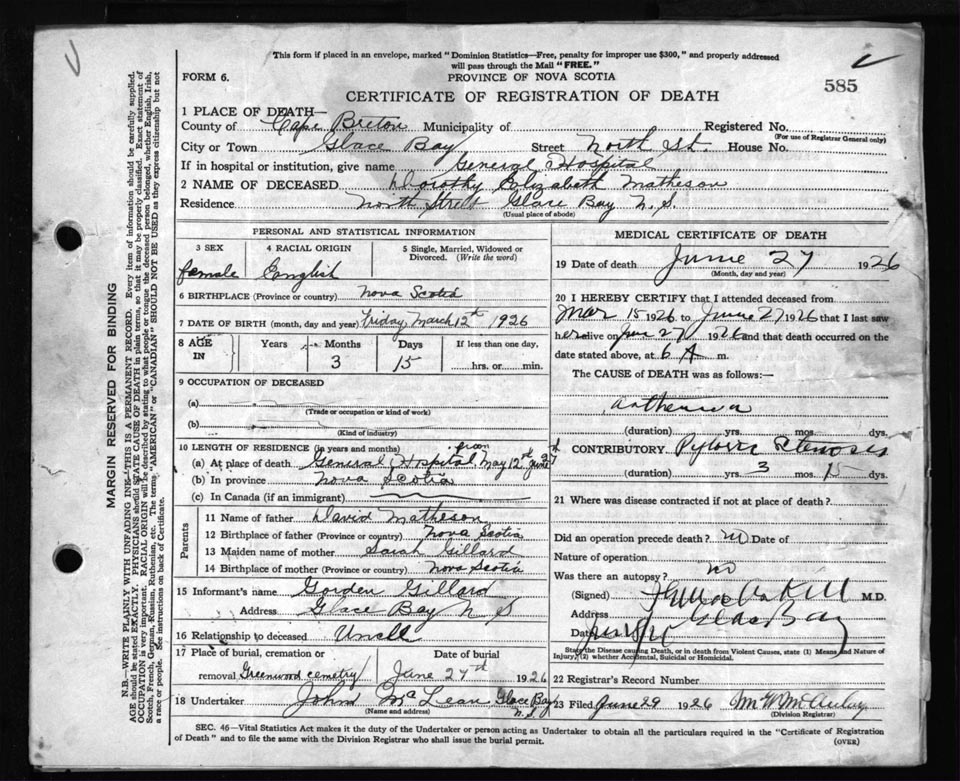 This form if placed in an envelope, marked "Dominion Statistics—Free, penalty for improper use $300," and properly addressed
will pass through the Mail "FREE."
FORM 6.
PROVINCE OF NOVA SCOTIA
585
CERTIFICATE OF REGISTRATION OF DEATH
1 PLACE OF DEATH—
County of Cape Breton Municipality of Registered No.
(For use of Registrar General only)
City or Town Glace Bay Street North St. House No.
If in hospital or institution, give name General Hospital
2 NAME OF DECEASED Dorothy Elizabeth Matheson
Residence North Street Glace Bay N.S.
(Usual place of abode)
PERSONAL AND STATISTICAL INFORMATION
3 SEX 4 RACIAL ORIGIN 5 Single, Married, Widowed or
Divorced. (Write the word)
female English
6 BIRTHPLACE (Province or country) Nova Scotia
7 DATE OF BIRTH (month, day and year) Friday March 12th 1926
8 AGE IN Years Months Days If less than one day,
3 15 hrs. or min.
9 OCCUPATION OF DECEASED
(a)
(Trade or occupation or kind of work)
(b)
(Kind of industry)
10 LENGTH OF RESIDENCE (in years and months)
(a) At place of death General Hospital from May 12th June 27th
(b) In province Nova Scotia
(c) In Canada (if an immigrant)
Parents
11 Name of father David Matheson
12 Birthplace of father (Province or country) Nova Scotia
13 Maiden name of mother Sarah Gillard
14 Birthplace of mother (Province or country) Nova Scotia
15 Informant's name Gorden Gillard
Address Glace Bay N S
16 Relationship to deceased Uncle
17 Place of burial, cremation or Date of burial
removal Greenwood cemetry June 27th 1926
18 Undertaker John McLean Glace Bay N.S.
(Name and address)
MEDICAL CERTIFICATE OF DEATH
19 Date of death June 27 1926
(Month, day and year)
20 I HEREBY CERTIFY that I attended deceased from
Mar 15 1926 to June 27 1926 that I last saw
her alive on June 27 1926 and that death occurred on the
date stated above, at 6 A m.
The CAUSE of DEATH was as follows:—
asthenia
(duration) yrs. mos. dys.
CONTRIBUTORY Pyloric Stenosis
(duration) yrs. 3 mos. 15 dys.
21 Where was disease contracted if not at place of death?
Did an operation precede death? no Date of
Nature of operation
Was there an autopsy? no
(Signed) M.D.
Address Glace Bay
Date
State the Disease causing Death, or in death from Violent Causes, state (1) Means and Nature of
Injury; (2) whether Accidental, Suicidal or Homicidal.
22 Registrar's Record Number
23 Filed June 29 1926 M W McAulay
(Division Registrar)
SEC. 46—Vital Statistics Act makes it the duty of the Undertaker or person acting as Undertaker to obtain all the particulars required in the "Certificate of Registration
of Death" and to file the same with the Division Registrar who shall issue the burial permit.
(OVER)
MARGIN RESERVED FOR BINDING
N.B.—WRITE PLAINLY WITH UNFADING INK—THIS IS A PERMANENT RECORD. Every item of information should be carefully supplied.
AGE should be stated EXACTLY. PHYSICIANS should STATE CAUSE OF DEATH in plain terms, so that it may be properly classified. Exact statement of
OCCUPATION is very important. RACIAL ORIGIN will be described by stating to what people or tongue the deceased person belonged, whether English, Irish,
Scotch, French, German, Russian, Ruthenian, etc. The terms "AMERICAN" or "CANADIAN" SHOULD NOT BE USED as they express citizenship but not
a race or people. See instructions on back of Certificate.